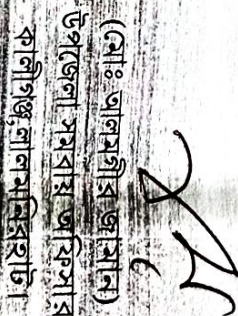 (মোঃ আলমগীর জামান)
উপজেলা সমবায় অফিসার
কালীগঞ্জ, লালমনিরহাট।